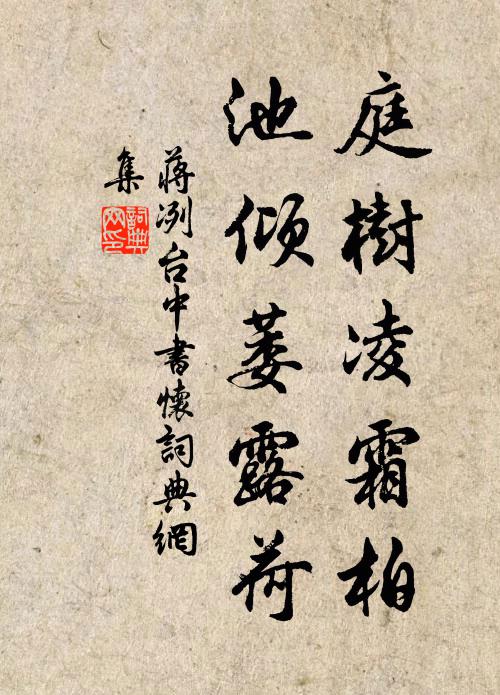 庭樹凌霜柏
池傾萎露荷
蔣冽台中書懷詞典網
集
詞典網印